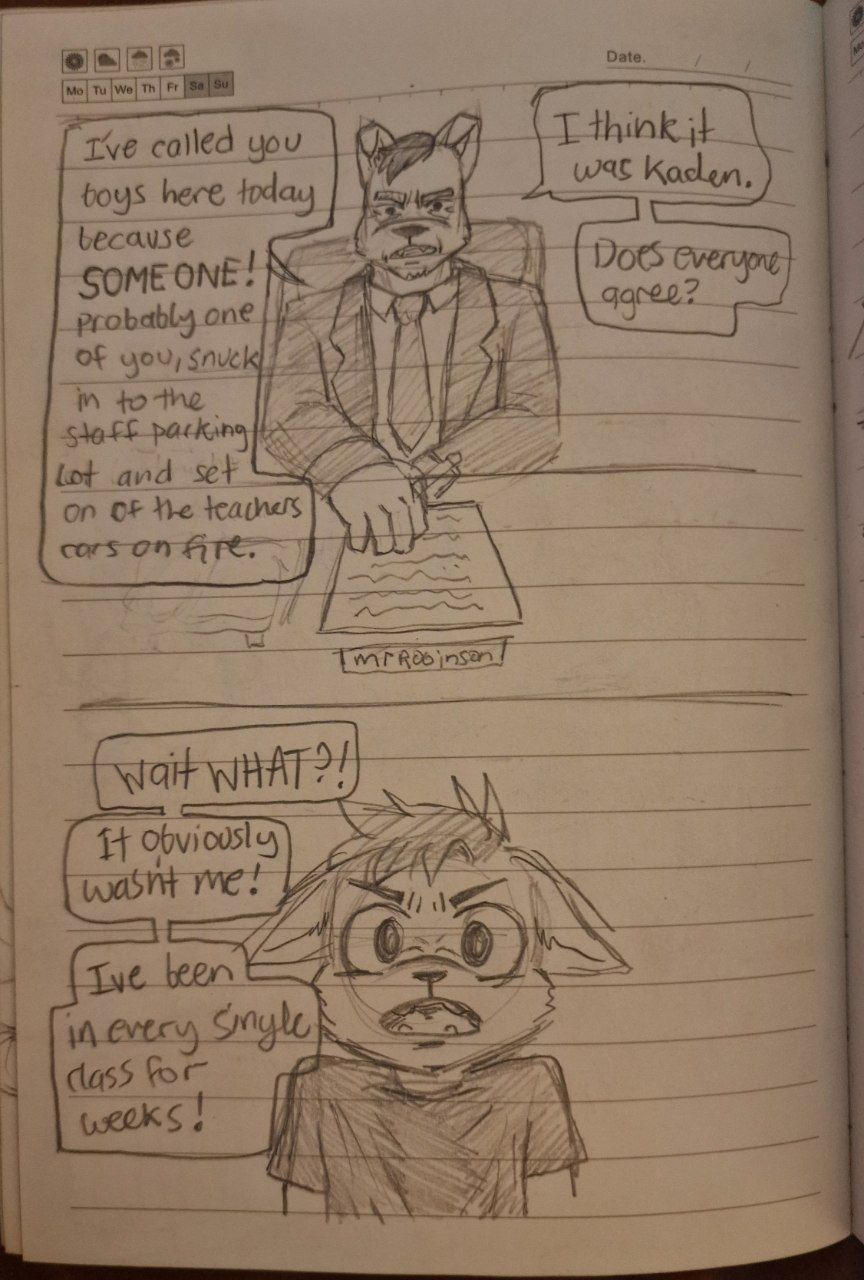 Date. / /
Mo Tu We Th Fr Sa Su
I've called you
boys here today
because
SOMEONE!
probably one
of you, snuck
in to the
staff parking
Lot and set
on of the teachers
cars on fire.
I think it
was Kaden.
Does everyone
agree?
Mr Robinson
Wait WHAT?!
It obviously
wasn't me!
I've been
in every single
class for
weeks!